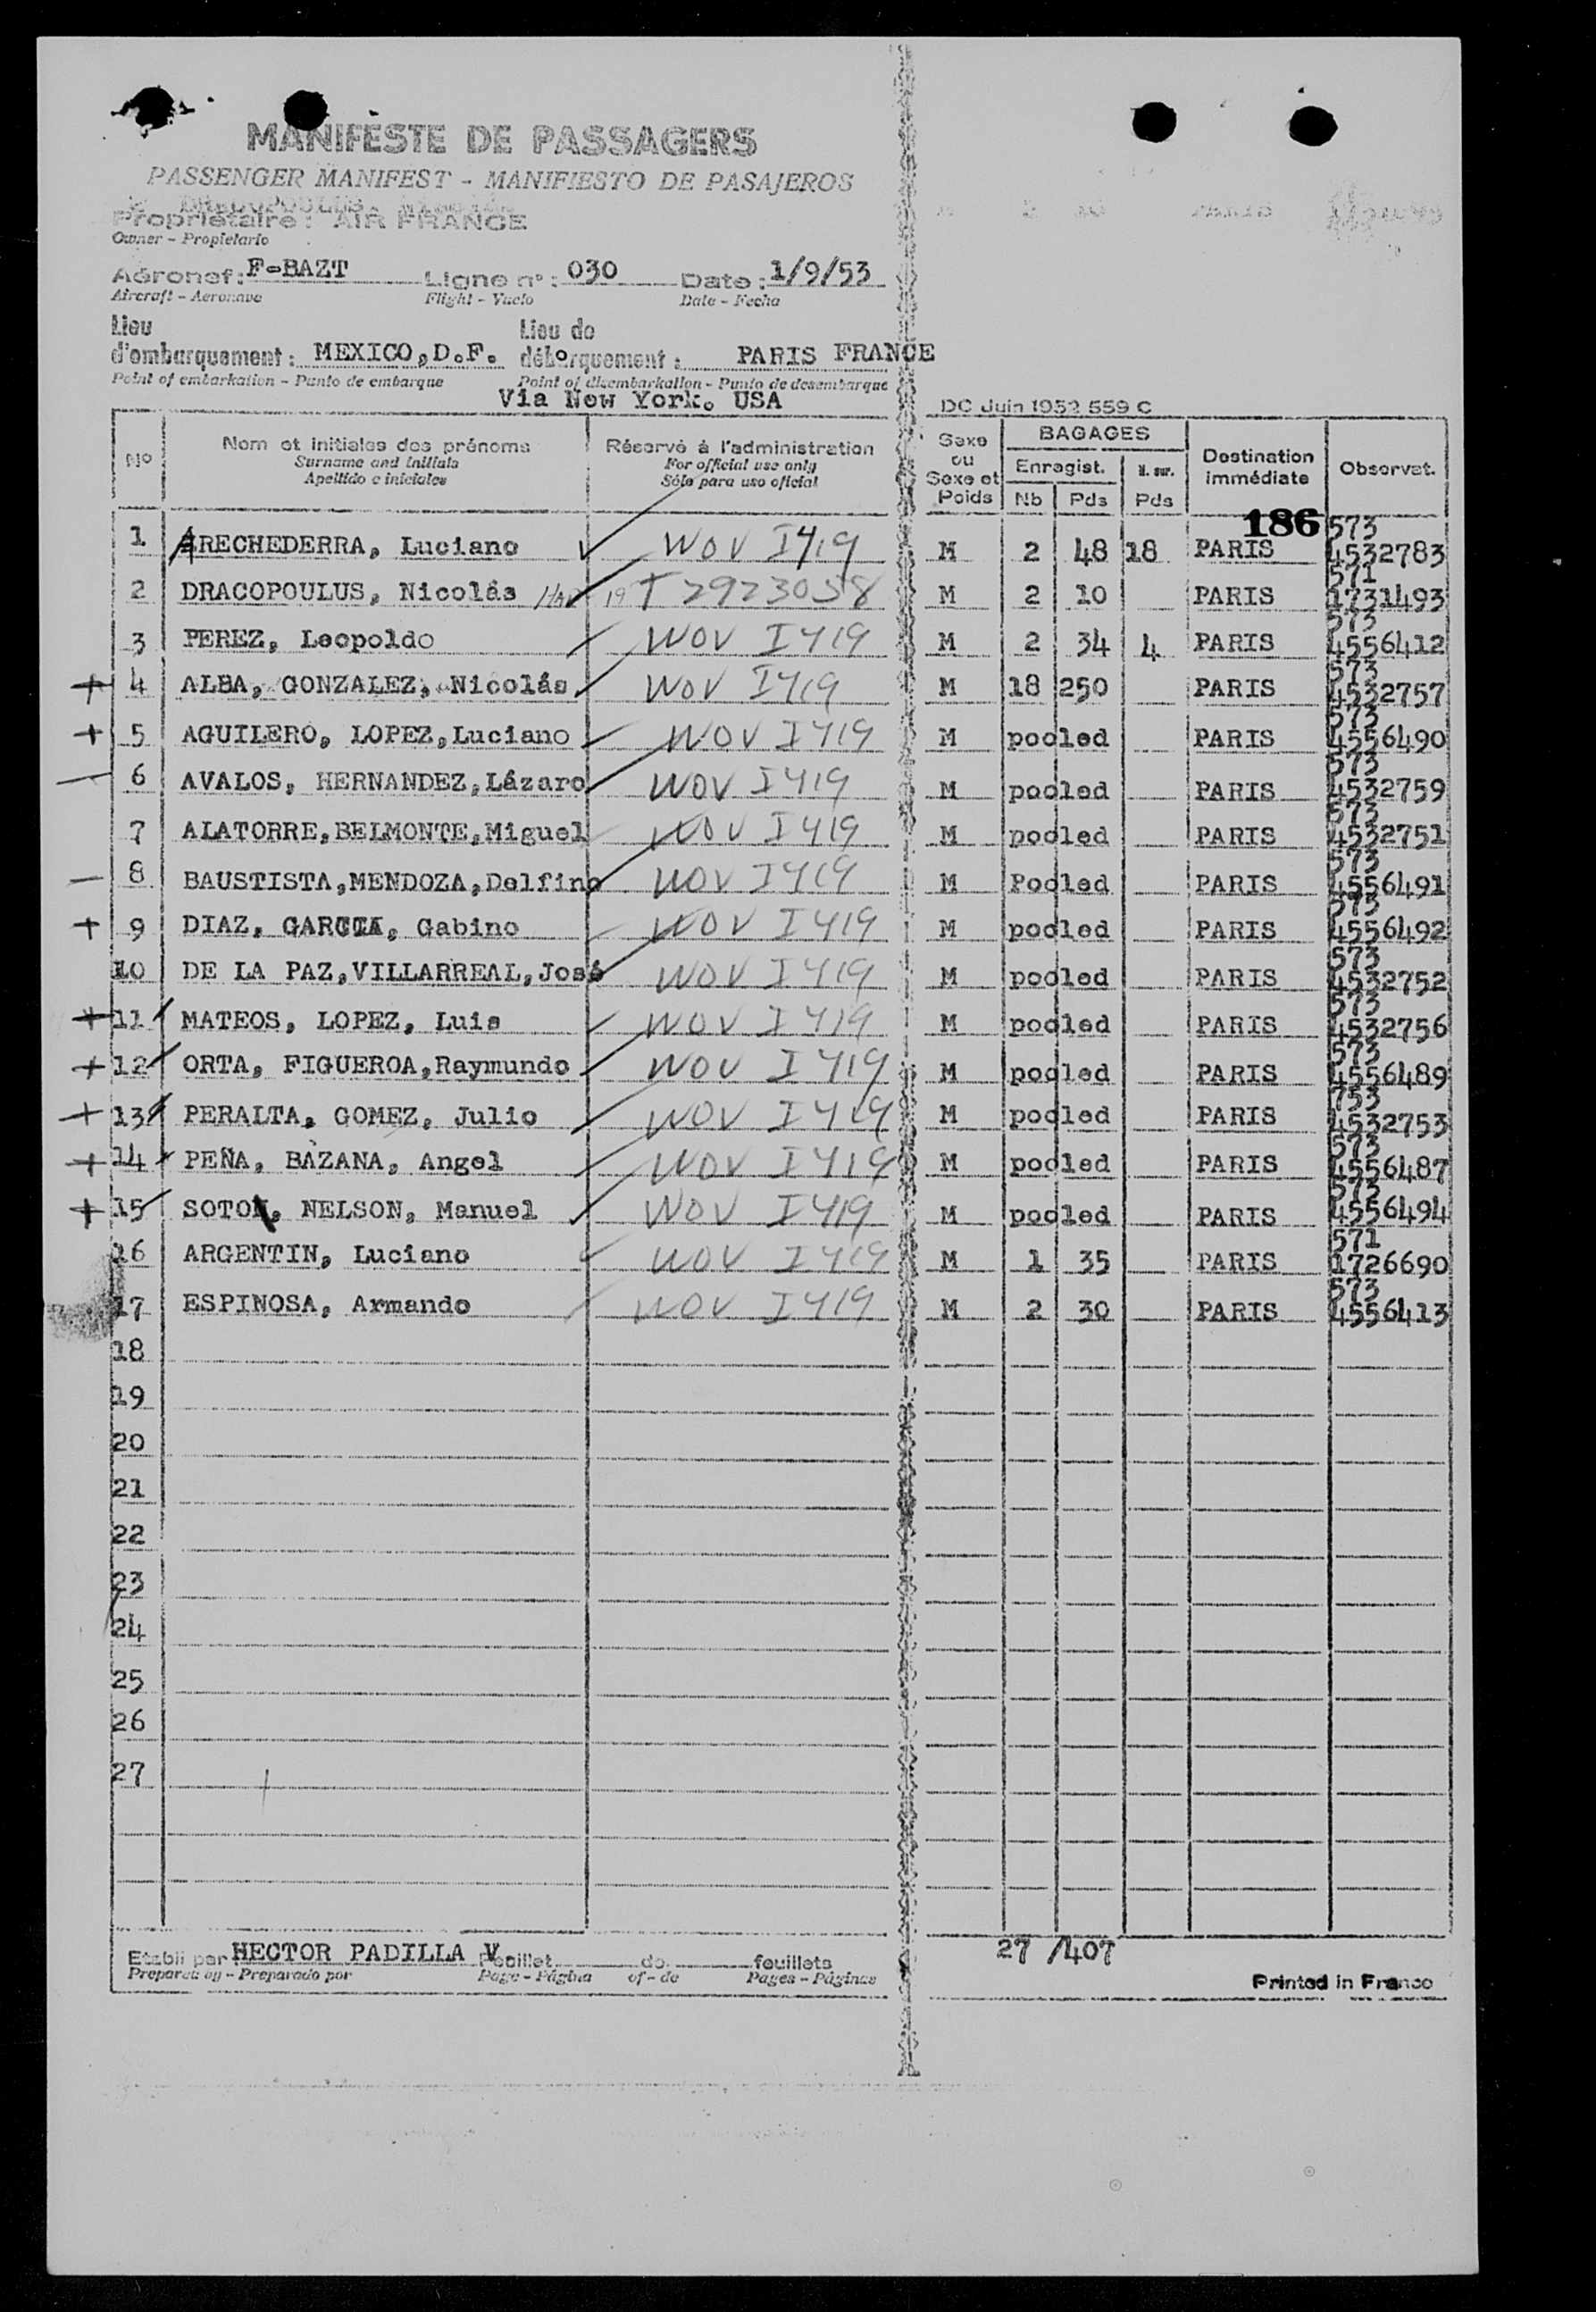 MANIFESTE DE PASSAGERS
PASSENGER MANIFEST - MANIFIESTO DE PASAJEROS
Propriétaire : AIR FRANCE
Owner - Propietario
Aéronef : F-BAZT Ligne n° : 030 Date : 1/9/53
Aircraft - Aeronave Flight - Vuelo Date - Fecha
Lieu d'embarquement : MEXICO, D.F. Lieu de débarquement : PARIS FRANCE
Point of embarkation - Punto de embarque Point of disembarkation - Punto de desembarque
Via New York. USA
DC Juin 1952 559 C
No Nom et initiales des prénoms Réservé à l'administration Sexe ou Sexe et Poids BAGAGES Destination immédiate Observat.
Surname and initials For official use only Enregist. N. enr.
Apellido e iniciales Sólo para uso oficial Nb Pds Pds
186
1 ARECHEDERRA, Luciano WOV I419 M 2 48 18 PARIS 573 4532783
2 DRACOPOULUS, Nicolás T 2923058 M 2 10 PARIS 571 1731493
3 PEREZ, Leopoldo WOV I419 M 2 34 4 PARIS 573 4556412
+ 4 ALBA, GONZALEZ, Nicolás WOV I419 M 18 250 PARIS 573 4532757
+ 5 AGUILERO, LOPEZ, Luciano WOV I419 M pooled PARIS 573 4556490
— 6 AVALOS, HERNANDEZ, Lázaro WOV I419 M pooled PARIS 573 4532759
7 ALATORRE, BELMONTE, Miguel WOV I419 M pooled PARIS 573 4532751
— 8 BAUSTISTA, MENDOZA, Delfino WOV I419 M Pooled PARIS 573 4556491
+ 9 DIAZ, GARCIA, Gabino WOV I419 M pooled PARIS 573 4556492
10 DE LA PAZ, VILLARREAL, José WOV I419 M pooled PARIS 573 4532752
+ 11 MATEOS, LOPEZ, Luis WOV I419 M pooled PARIS 573 4532756
+ 12 ORTA, FIGUEROA, Raymundo WOV I419 M pooled PARIS 573 4556489
+ 13 PERALTA, GOMEZ, Julio WOV I419 M pooled PARIS 753 4532753
+ 14 PEÑA, BAZANA, Angel WOV I419 M pooled PARIS 573 4556487
+ 15 SOTO, NELSON, Manuel WOV I419 M pooled PARIS 573 4556494
16 ARGENTIN, Luciano WOV I419 M 1 35 PARIS 571 1726690
17 ESPINOSA, Armando WOV I419 M 2 30 PARIS 573 4556413
18
19
20
21
22
23
24
25
26
27
Etabli par HECTOR PADILLA V. Feuillet de feuillets 27 /407
Prepared by - Preparado por Page - Página of - de Pages - Páginas
Printed in France